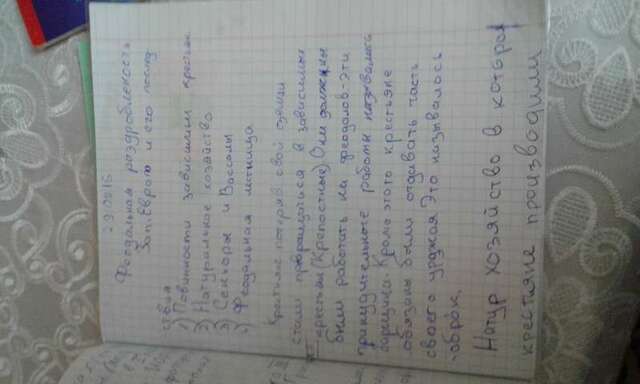 29.0915
Феодальная раздробленость
Зап.Европы и его послед
ствия
1) Повинности зависимых крестьян
2) Натуральное хозяйство
3) Сеньоры и Вассалы
4) Феодальная лестница
Крестьяне потеряв свои земли
стали превращаться в зависимых
крестьян (Крепостные) Они должны
были работать на феодалов-эти
принудительные работы назывались
барщина. Кроме этого крестьяне
обязаны были отдавать часть
своего урджая Это называлось
-оброк.
Натур хозяйство в котором
крестяне производили